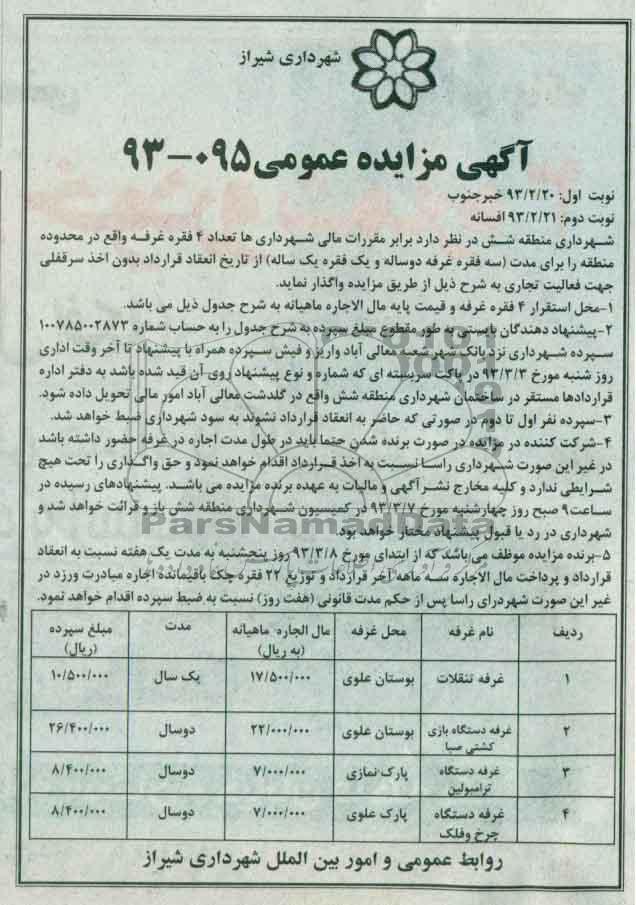 شهرداری شیراز
آگهی مزایده عمومی ۰۹۵-۹۳
نوبت اول: ۹۳/۲/۲۰ خبرجنوب
نوبت دوم: ۹۳/۲/۲۱ افسانه
شهرداری منطقه شش در نظر دارد برابر مقررات مالی شهرداری ها تعداد ۴ فقره غرفه واقع در محدوده
منطقه را برای مدت (سه فقره غرفه دوساله و یک فقره یک ساله) از تاریخ انعقاد قرارداد بدون اخذ سرقفلی
جهت فعالیت تجاری به شرح ذیل از طریق مزایده واگذار نماید.
۱-محل استقرار ۴ فقره غرفه و قیمت پایه مال الاجاره ماهیانه به شرح جدول ذیل می باشد.
۲-پیشنهاد دهندگان بایستی به طور مقطوع مبلغ سپرده به شرح جدول را به حساب شماره ۱۰۰۷۸۵۰۰۲۸۷۳
سپرده شهرداری نزد بانک شهر شعبه معالی آباد واریز و فیش سپرده همراه با پیشنهاد تا آخر وقت اداری
روز شنبه مورخ ۹۳/۳/۳ در پاکت سربسته ای که شماره و نوع پیشنهاد روی آن قید شده باشد به دفتر اداره
قراردادها مستقر در ساختمان شهرداری منطقه شش واقع در گلدشت معالی آباد امور مالی تحویل داده شود.
۳-سپرده نفر اول تا دوم در صورتی که حاضر به انعقاد قرارداد نشوند به سود شهرداری ضبط خواهد شد.
۴-شرکت کننده در مزایده در صورت برنده شدن حتما باید در طول مدت اجاره در غرفه حضور داشته باشد
در غیر این صورت شهرداری راسا نسبت به اخذ قرارداد اقدام خواهد نمود و حق واگذاری را تحت هیچ
شرایطی ندارد و کلیه مخارج نشر آگهی و مالیات به عهده برنده مزایده می باشد. پیشنهادهای رسیده در
ساعت۹ صبح روز چهارشنبه مورخ ۹۳/۳/۷ در کمیسیون شهرداری منطقه شش باز و قرائت خواهد شد و
شهرداری در رد یا قبول پیشنهاد مختار خواهد بود.
ParsNamadData
۵-برنده مزایده موظف می باشد که از ابتدای مورخ ۹۳/۳/۸ روز پنجشنبه به مدت یک هفته نسبت به انعقاد
قرارداد و پرداخت مال الاجاره سه ماهه آخر قرارداد و توزیع ۲۲ فقره چک باقیمانده اجاره مبادرت ورزد در
غیر این صورت شهردرای راسا پس از حکم مدت قانونی (هفت روز) نسبت به ضبط سپرده اقدام خواهد نمود.
ردیف نام غرفه محل غرفه مال الجاره ماهیانه (به ریال) مدت مبلغ سپرده (ریال)
۱ غرفه تنقلات بوستان علوی ۱۷/۵۰۰/۰۰۰ یک سال ۱۰/۵۰۰/۰۰۰
۲ غرفه دستگاه بازی کشتی صبا بوستان علوی ۲۲/۰۰۰/۰۰۰ دوسال ۲۶/۴۰۰/۰۰۰
۳ غرفه دستگاه ترامبولین پارک نمازی ۷/۰۰۰/۰۰۰ دوسال ۸/۴۰۰/۰۰۰
۴ غرفه دستگاه چرخ وفلک پارک علوی ۷/۰۰۰/۰۰۰ دوسال ۸/۴۰۰/۰۰۰
روابط عمومی و امور بین الملل شهرداری شیراز